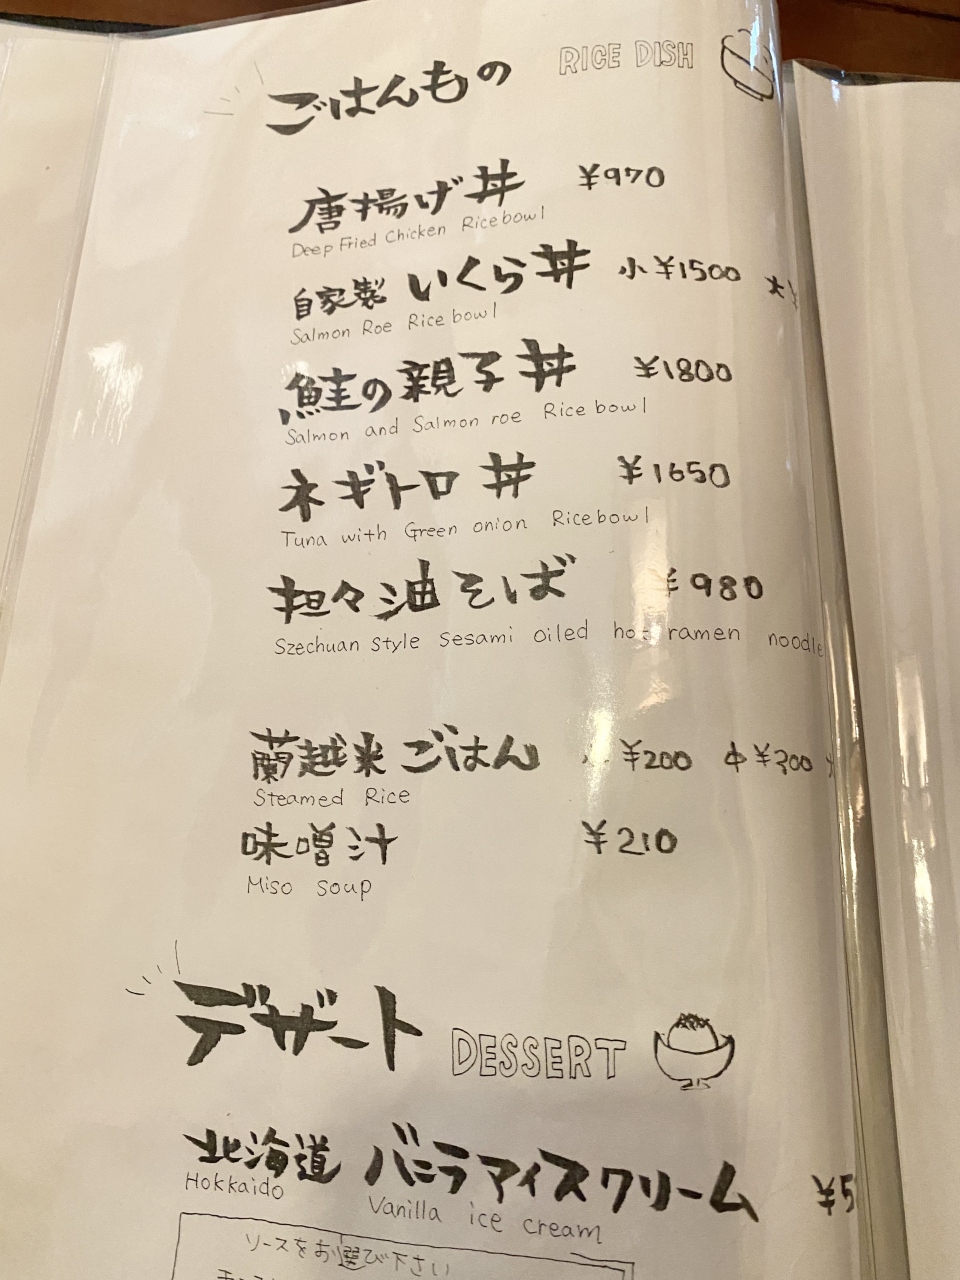 ごはんもの RICE DISH
唐揚げ丼 ¥970
Deep Fried Chicken Rice bowl
自家製 いくら丼 小¥1500 大¥
Salmon Roe Rice bowl
鮭の親子丼 ¥1800
Salmon and Salmon roe Rice bowl
ネギトロ丼 ¥1650
Tuna with Green onion Rice bowl
担々油そば ¥980
Szechuan style Sesami oiled hot ramen noodle
蘭越米 ごはん 小 ¥200 中¥300
Steamed Rice
味噌汁 ¥210
Miso soup
デザート DESSERT
北海道 バニラアイスクリーム ¥5
Hokkaido Vanilla ice cream
ソースをお選び下さい